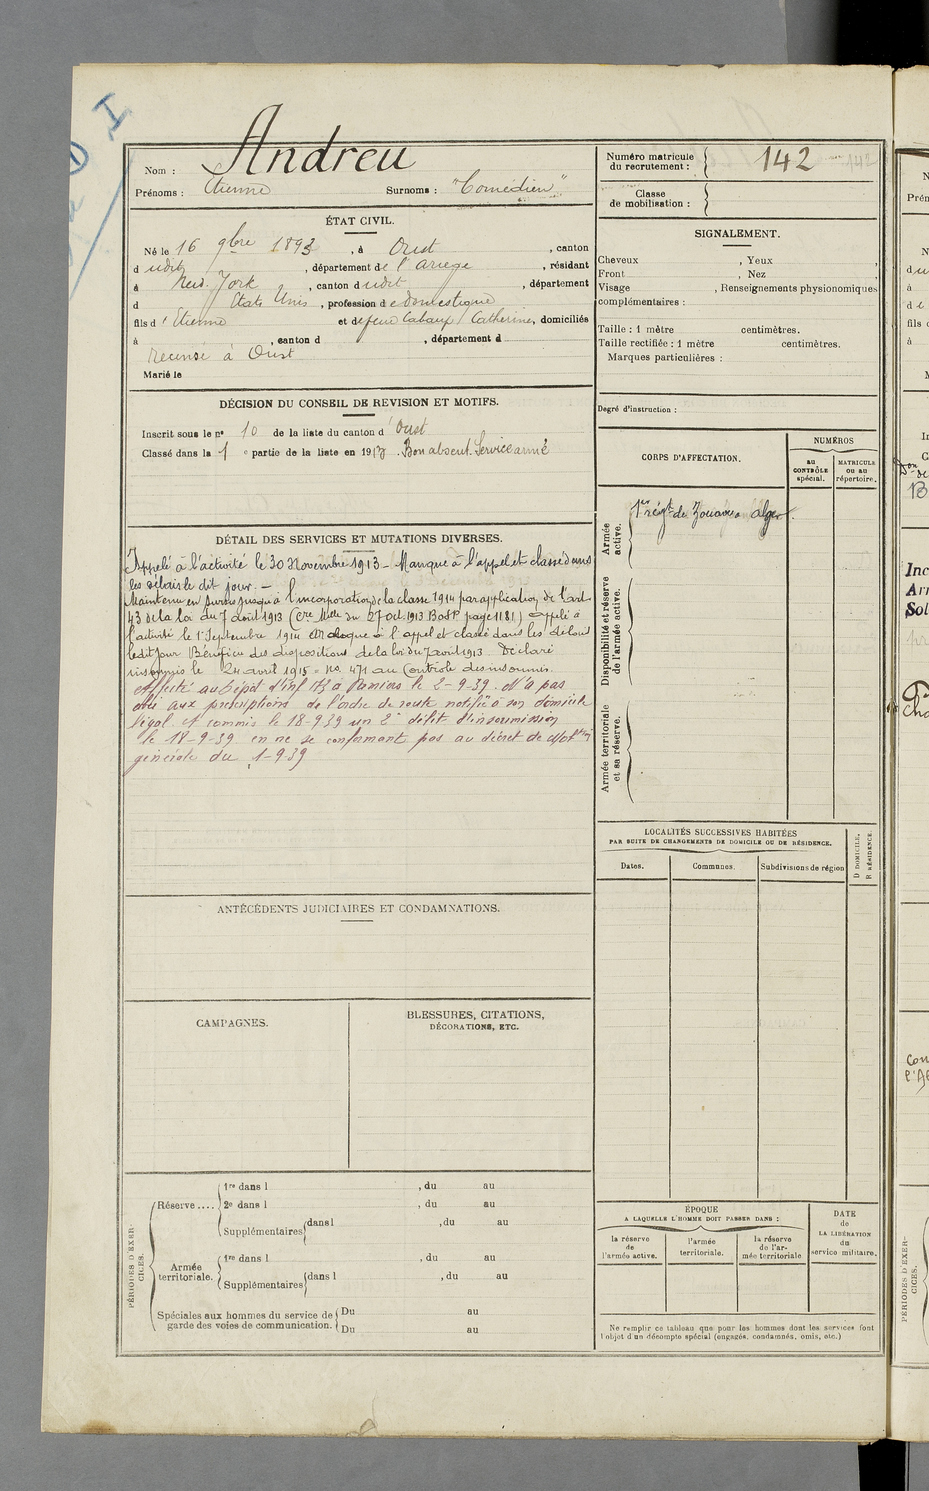 I
Nom : Andreu
Prénoms : Etienne Surnoms : "Comédien"
ÉTAT CIVIL.
Né le 16 9bre 1893, à Oust, canton
d udit, département de l'Ariège, résidant
à New-York, canton dudit, département
d Etats Unis, profession de domestique
fils d'Etienne et de feue Cabaup Catherine, domiciliés
à , canton d , département d
Recensé à Oust
Marié le
DÉCISION DU CONSEIL DE REVISION ET MOTIFS.
Inscrit sous le no 10 de la liste du canton d'Oust
Classé dans la 1e partie de la liste en 1913. Bon absent. Service armé
DÉTAIL DES SERVICES ET MUTATIONS DIVERSES.
Appelé à l'activité le 30 Novembre 1913 - Manque à l'appel et classé dans
les délais le dit jour. -
Maintenu en sursis jusqu'à l'incorporation de la classe 1914 par application de l'art
43 de la loi du 7 août 1913 (Cre Mlle du 27 oct. 1913 BoSP page 1181) appelé à
l'activité le 1er Septembre 1914 Manque à l'appel et classé dans les délais
ledit jour Bénéficie des dispositions de la loi du 7 août 1913 Déclaré
insoumis le 24 avril 1915 = No 471 au Controle des insoumis.
Affecté au Dépôt d'Inf 173 à Pamiers le 2-9-39. N'a pas
obéi aux prescriptions de l'ordre de route notifié à son domicile
légal et commis le 18-9-39 un 2e délit d'insoumission
le 18-9-39 en ne se conformant pas au décret de Mobtion
générale du 1-9-39
ANTÉCÉDENTS JUDICIAIRES ET CONDAMNATIONS.
CAMPAGNES.
BLESSURES, CITATIONS,
DÉCORATIONS, ETC.
PÉRIODES D'EXER-
CICES.
Réserve ....
1re dans l , du au
2e dans l , du au
Supplémentaires dans l , du au
Armée
territoriale.
1re dans l , du au
Supplémentaires dans l , du au
Spéciales aux hommes du service de
garde des voies de communication.
Du au
Du au
Numéro matricule
du recrutement : 142
Classe
de mobilisation :
SIGNALEMENT.
Cheveux , Yeux ,
Front , Nez
Visage , Renseignements physionomiques
complémentaires :
Taille : 1 mètre centimètres.
Taille rectifiée : 1 mètre centimètres.
Marques particulières :
Degré d'instruction :
CORPS D'AFFECTATION.
NUMÉROS
AU
CONTRÔLE
spécial.
MATRICULE
OU AU
répertoire.
Armée
active.
1er régt de Zouaves Alger.
Disponibilité et réserve
de l'armée active.
Armée territoriale
et sa réserve.
LOCALITÉS SUCCESSIVES HABITÉES
PAR SUITE DE CHANGEMENTS DE DOMICILE OU DE RÉSIDENCE.
Dates.
Communes.
Subdivisions de région
D DOMICILE.
R RÉSIDENCE.
ÉPOQUE
A LAQUELLE L'HOMME DOIT PASSER DANS :
la réserve
de
l'armée active.
l'armée
territoriale.
la réserve
de l'ar-
mée territoriale
DATE
de
LA LIBÉRATION
du
service militaire.
Ne remplir ce tableau que pour les hommes dont les services font
l'objet d'un décompte spécial (engagés, condamnés, omis, etc.)